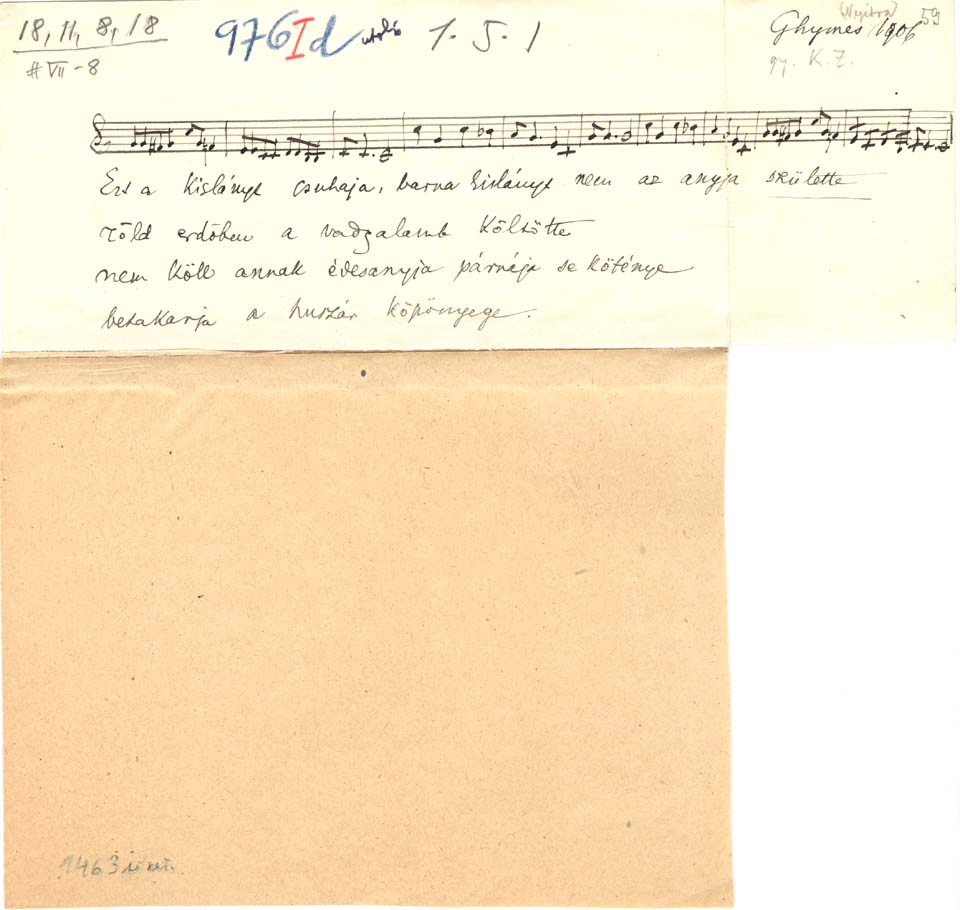 18, 11, 8, 18
# VII - 8
976 I d utolsó 1. 5. 1
(Nyitra) 59
Ghymes 1906
gy. K. Z.
Ezt a kislányt csuhaja, barna kislányt nem az anyja születte
zöld erdőben a vadgalamb költötte
nem köll annak édesanyja párnája se köténye
betakarja a huszár köpönyege.
1463